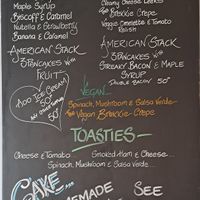 Maple Syrup
Biscoff & Caramel
Nutella & Strawberry
Banana & Caramel
American Stack
3 Pancakes with
Fruit
Add Ice Cream
50p
Creamy Cheese Leeks
Brekkie Crepe
Veggie Omelette & Tomato
Relish
American Stack
3 Pancakes with
Streaky Bacon & Maple
Syrup
Double Bacon 50p
Vegan
Spinach, Mushroom & Salsa Verde
Vegan Brekkie-Crepe
Toasties
Cheese & Tomato
Smoked Ham & Cheese
Spinach, Mushroom & Salsa Verde
Cake...
Homemade
See